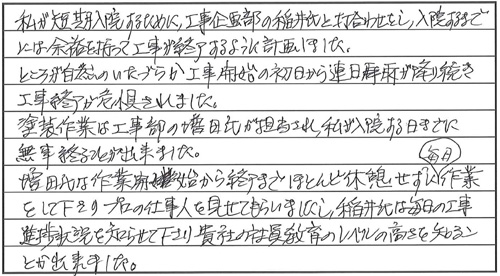 私が短期入院するために、工事企画部の稲井氏と打合わせをし、入院するまで
には余裕を持って工事が終了するように計画しました。
ところが自然のいたづらか工事開始の初日から連日降雨が降り続き
工事終了が危惧されました。
塗装作業は工事部の増田氏が担当され、私が入院する日までに
無事終ることが出来ました。
増田氏は作業開始から終了までほとんど休憩せずに毎日作業
をして下さりプロの仕事人を見せてもらいましたし、稲井氏は毎日の工事
進捗状況を知らせて下さり貴社の社員教育のレベルの高さを知るこ
とが出来ました。